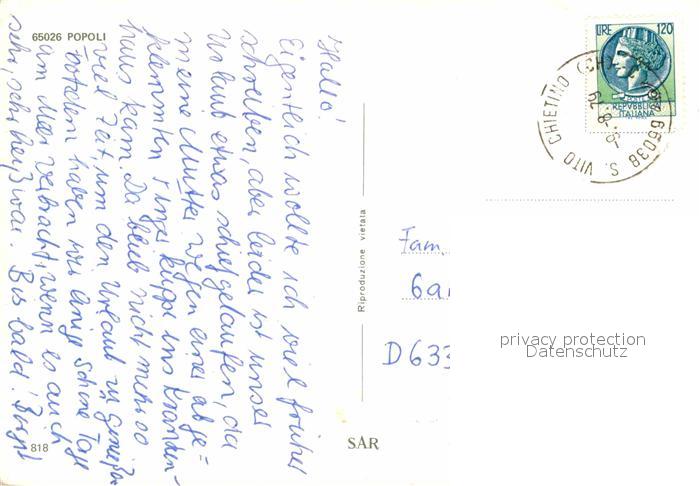 65026 POPOLI
Hallo!
Eigentlich wollte ich viel früher
schreiben, aber leider ist unser
Urlaub etwas schief gelaufen, da
meine Mutter wegen einer abge=
klemmten Finger kuppe ins Kranken-
haus kam. Da blieb nicht mehr so
viel Zeit, um den Urlaub zu genießen
Trotzdem haben wir einige schöne Tage
am Meer verbracht, wenn es auch
sehr, sehr heiß war. Bis bald! Birgit
818
Riproduzione vietata
SAR
LIRE 120
REPVBBLICA
ITALIANA
66038 S. VITO CHIETINO (CH)
Fam.
6a
D 633
privacy protection
Datenschutz